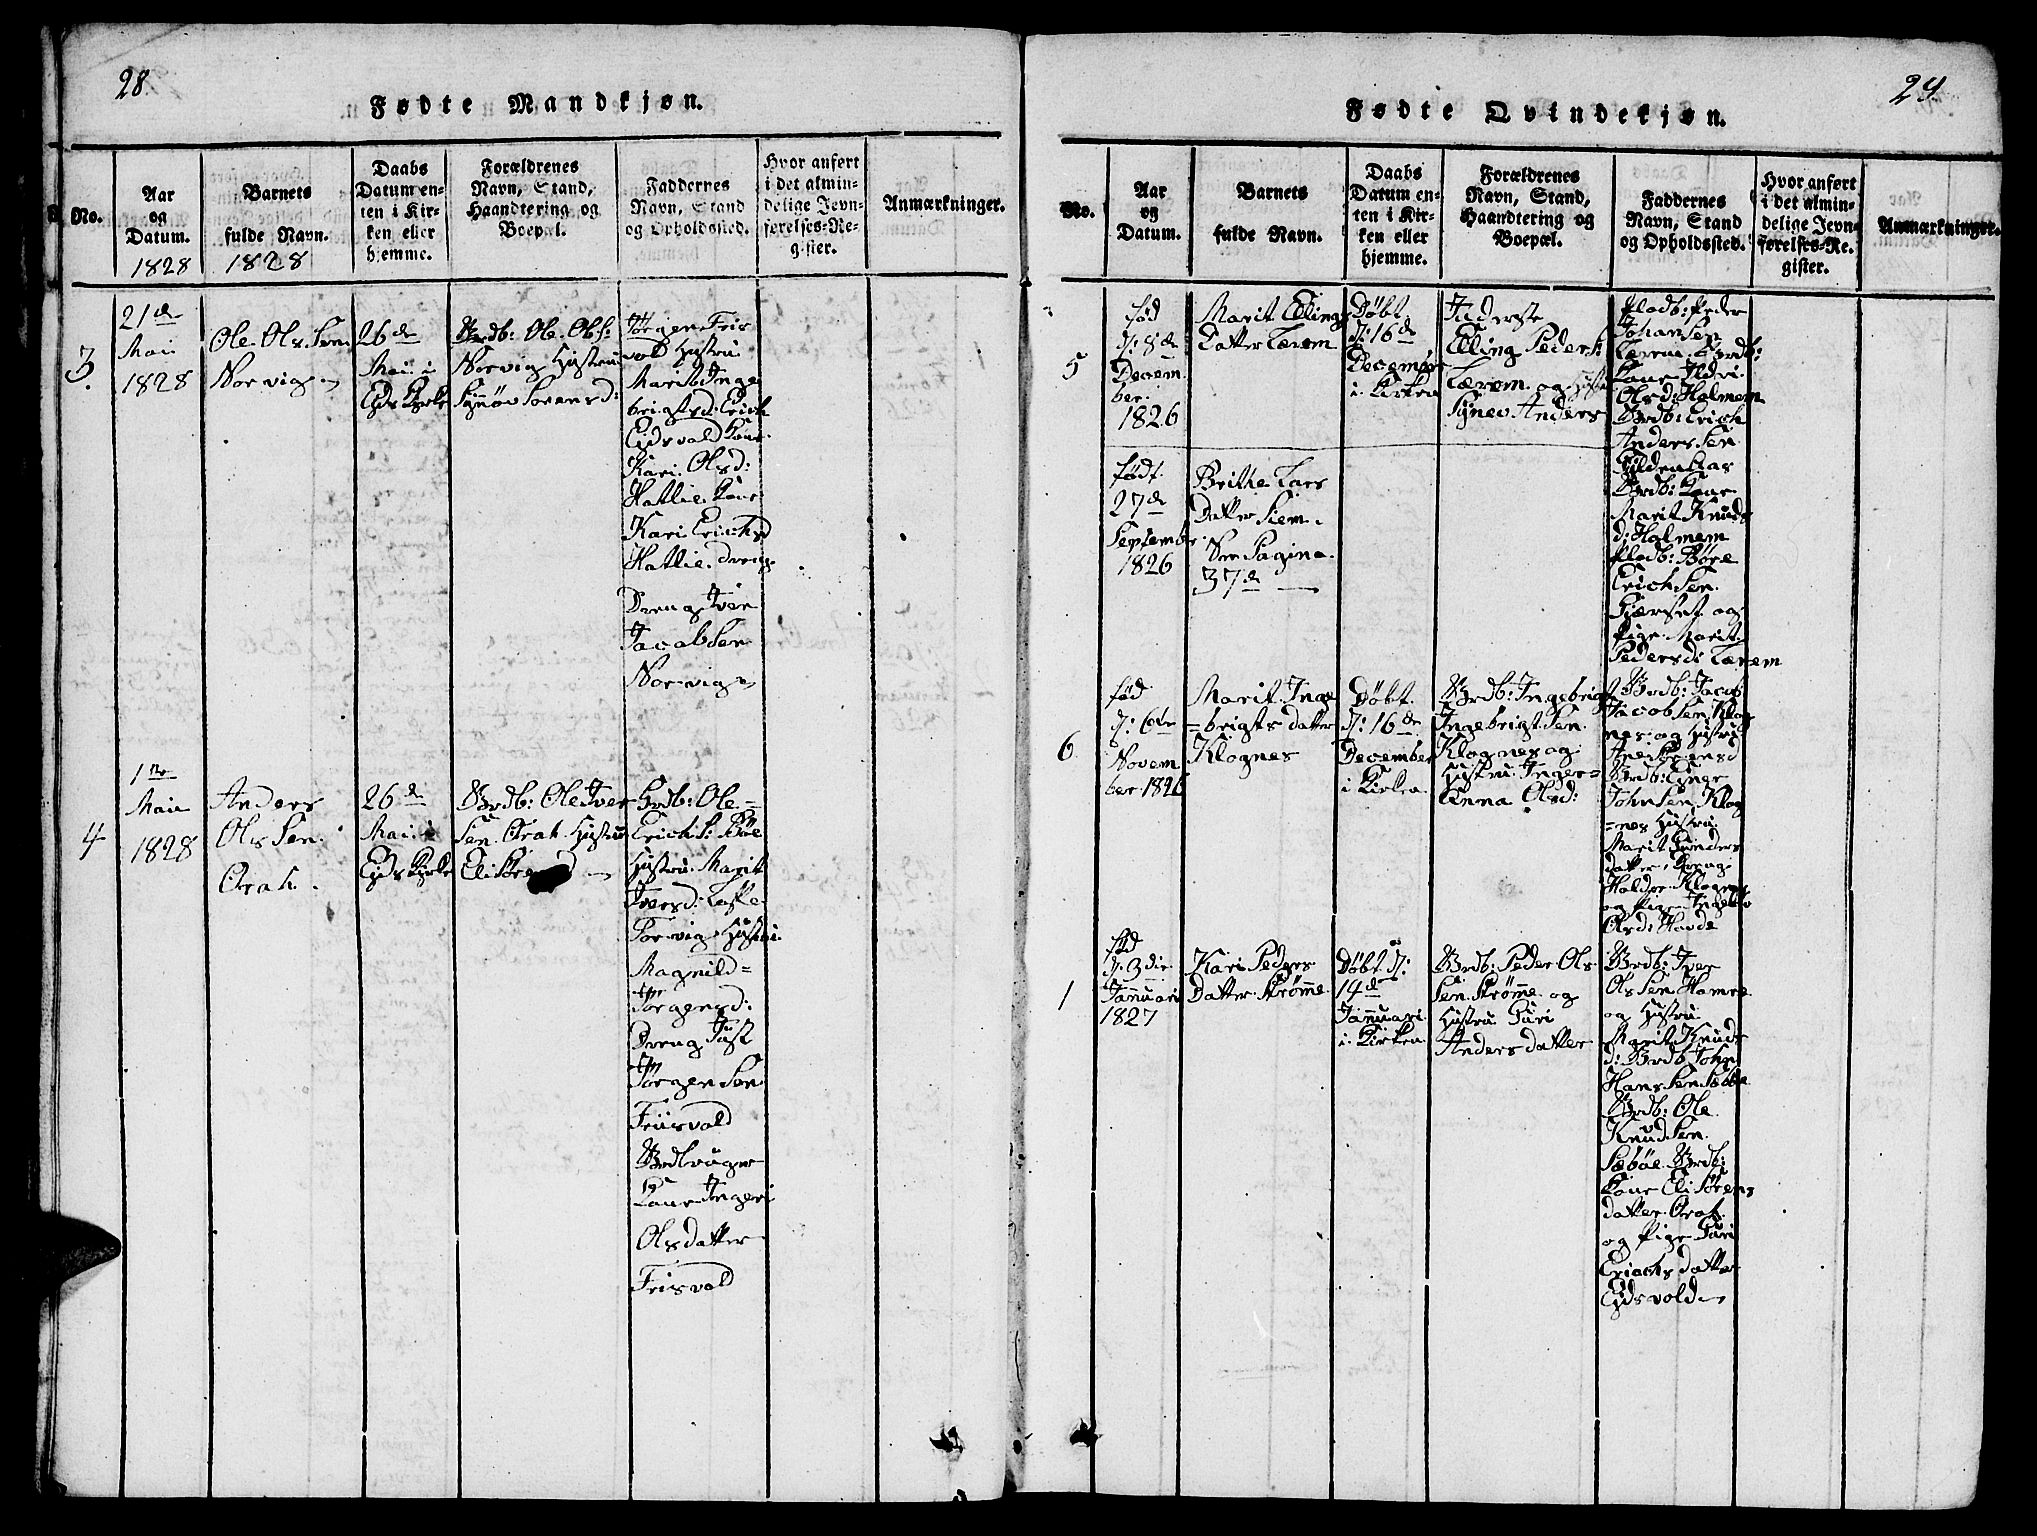 28.
Fødte Mandkjøn.
No.
Aar
og
Datum.
1828
Barnets
fulde Navn.
1828
Daabs
Datum en-
ten i Kir-
ken eller
hjemme.
Forældrenes
Navn, Stand,
Haandtering og
Boepæl.
Faddernes
Navn, Stand
og Opholdssted.
Hvor anført
i det almin-
delige Jevn-
førelses-Re-
gister.
Anmærkninger.
3.
21de
Mai
1828
Ole Ols Sen
Norvig
26de
Mai i
Eids Kirke
Brdb: Ole Ols:
Norvig Hustru
Synnøv Sørensd:
Jørgen Fris
vold Hustru
Marit Inge
brigtsd: Erich
Eidsvold Kone
Kari Olsd:
Hattle Kone
Kari Erichsd
Hattle dreng
Dreng Iver
Jacob Sen
Norvig
4
1ste
Mai
1828
Anders
Ols Sen
Orah
26de
Mai i
Eids Kirke
Brdb: Ole Iver
Sen Orah Hustru
Eli
Brdb: Ole
Erichs: Bøe
Hustru Marit
Iversd:
Torvig Hustru
Magnild
Jørgensd:
Dreng Just
Jørgen Sen
Friisvold
Brdbruger
Kone Ingeri
Olsdatter
Frisvold
29
Fødte Qvindekjøn.
No.
Aar
og
Datum.
Barnets
fulde Navn.
Daabs
Datum en-
ten i Kir-
ken eller
hjemme.
Forældrenes
Navn, Stand,
Haandtering og
Boepæl.
Faddernes
Navn, Stand
og Opholdssted.
Hvor anført
i det almin-
delige Jevn-
førelses-Re-
gister.
Anmærkninger.
5
fød
d: 8de
Decem
ber
1826
Marit Ellings
Datter Lerem
Døbt
d: 16de
December
i Kirken
Inderste
Elling Peders
Lerem og Hustru
Synev Anders
Pladb: Peder
Johan Sen
Lerem Brdb:
Kone Ildri
Olsd: Holmem
Brdb: Erich
Anders Sen
Brdb: Kone
Marit Knuds
d: Holmem
Pladb: Børe
Erich Sen
Gjerset og
Pige Marit
Pedersd: Lerem
født
27de
September
1826
Brithe Lars
Datter Siem
See Pagina
37de
6
fød
d: 6de
Novem
ber 1826
Marit Inge
=brigts datter
Klognes
Døbt
d: 16de
December
i Kirken
Brdb: Ingebrigt
Ingebrigt Sen
Klognes og
Hustru Inger=
Anna Olsd:
Brdb: Jacob
Jacob Sen Klog
nes og Hustru
Ane Sørensd
Brdb: Einer
John Sen Klog
=nes Hustru
Marit Gunders
datter, Dreng
Haldor Klognes
og Pige Ingebor
Olsd: Hovde
1
fød
d: 3die
Januari
1827
Kari Peders
Datter Strømme
Døbt d:
14de
Januari
i Kirken
Brdb: Peder Ols
Sen Strømme og
Hustru Guri
Anders datter
Brdb: Iver
Ols Sen Hamre
og Hustru
Marit Knuds
d: Brdb John
Hans Sen Sæbøe
Brdb: Ole
Knud Sen
Sæbøe Brdb:
Kone Eli Sørens
datter Orah
og Pige Guri
Erichs datter
Eidsvold